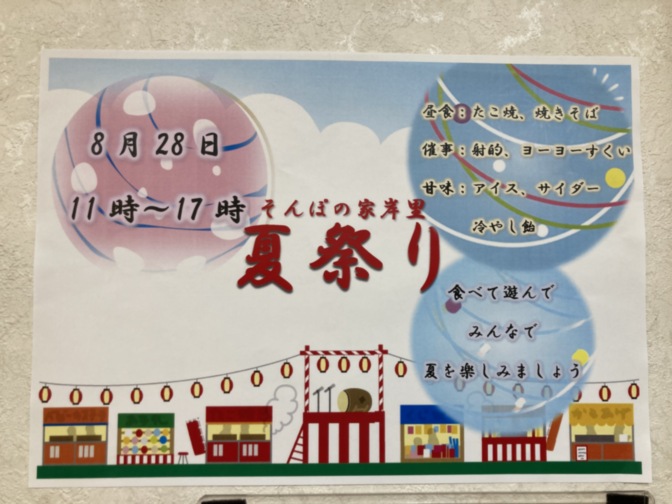 8月28日
11時～17時
そんぽの家岸里
夏祭り
昼食：たこ焼、焼きそば
催事：射的、ヨーヨーすくい
甘味：アイス、サイダー
冷やし飴
食べて遊んで
みんなで
夏を楽しみましょう
からあげ